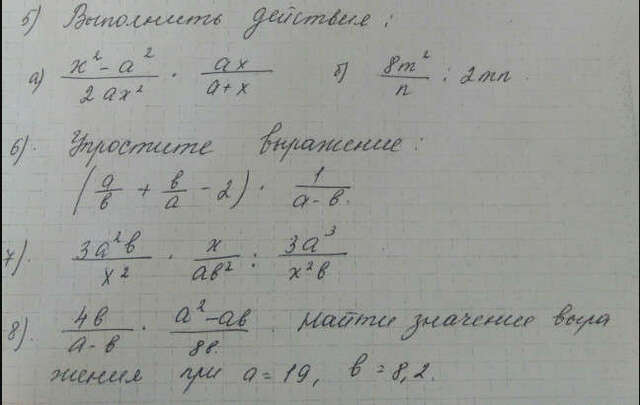 5) Выполнить действия:
а) (x² - a²)/(2ax²) · (ax)/(a+x) б) (8m²)/n : 2mn.
6). Упростите выражение:
(a/в + в/a - 2) · 1/(a-в).
7). (3a²в)/(x²) · x/(aв²) : (3a³)/(x²в)
8). (4в)/(a-в) · (a²-aв)/(88. найти значение выра
жения при a = 19, в = 8,2.